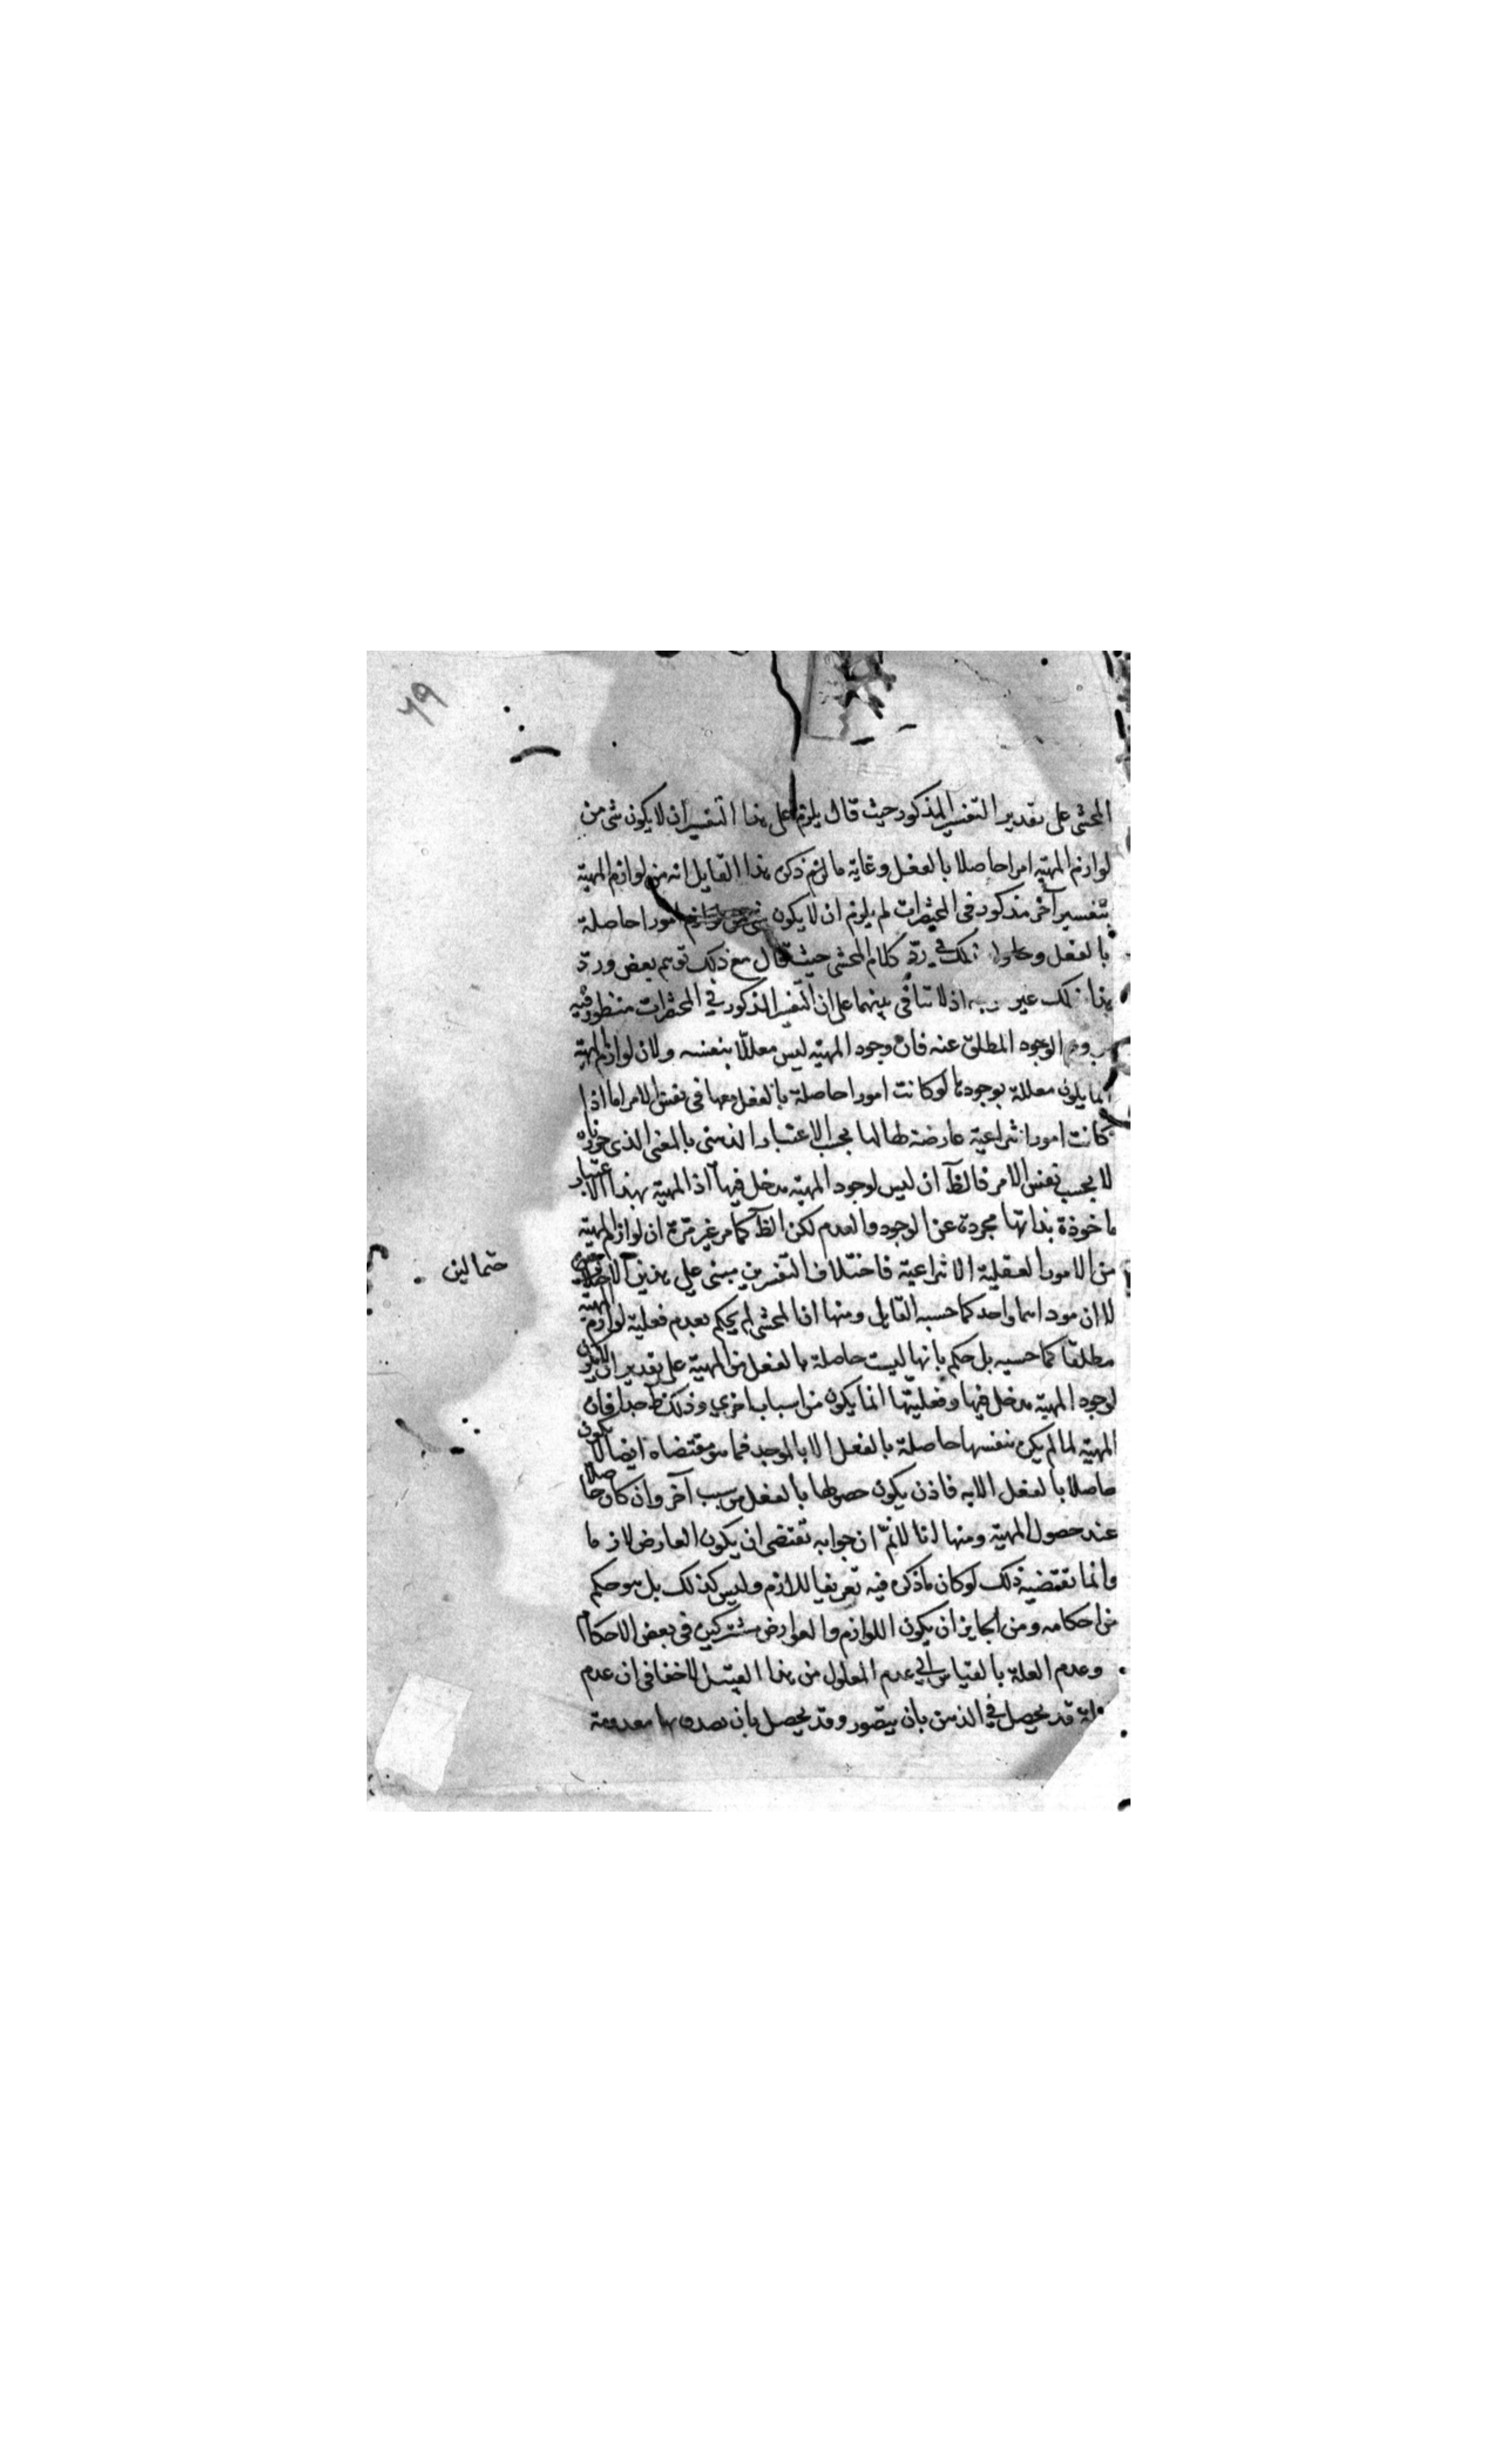 ٦٩
المحشى على تقدير التفسير المذكور حيث قال يلزم على هذا التفسير ان لا يكون شى من
لوازم المهية امرا حاصلا بالفعل وغاية ما لزم ذكره هذا القايل انه من لوازم المهية
بتفسير آخر مذكور فى المحضرات لم يلزم ان لا يكون امورا حاصلة
بالفعل ذلك فى ردّ كلام المحشى حيث قال مع ذلك توهم بعض وردّ
هذا ذلك غير اذ لا تنافى بينهما على ان التفسير المذكور فى المحضرات منظور فيه
الوجود المطلق عنه فان وجود المهية ليس معللا بنفسه ولان لوازم المهية
انما يكون معللة بوجودها لو كانت امورا حاصلة بالفعل معها فى نفس الامر اما اذا
كانت امورا انتزاعية عارضة لها بحسب الاعتبار الذهنى بالمعنى الذى حررناه
لا بحسب نفس الامر فالظآ ان ليس لوجود المهية مدخل فيها اذ المهية بهذا الاعتبار
ماخوذة بذاتها مجردة عن الوجود والعدم لكن الظآ كما مر غير مرّة ان لوازم المهية
من الامور العقلية الانتزاعية فاختلاف التفسيرين مبنى على هذين الاحتمالين
حتمالين
لا ان موداهما واحد كما حسبه القايل ومنها ان المحشى لم يحكم بعدم فعلية لوازم المهية
مطلقا كما حسبه بل حكم بانها ليست حاصلة بالفعل من المهية على تقدير ان لا يكون
لوجود المهية مدخل فيها وفعليتها انما يكون من اسباب اخرى وذلك ظ جدا فان
المهية لما لم يكن بنفسها حاصلة بالفعل الا بالموجد فما هو مقتضاه ايضا لا يكون
حاصلا بالفعل الا به فاذن يكون حصولها بالفعل من سبب آخر وان كان حاصلا
عند حصول المهية ومنها انا لا نمّ ان جوابه تقتضى ان يكون العارض لازما
وانما تقتضيه ذلك لو كان ما ذكره فيه تعريفا للازم وليس كذلك بل هو حكم
من احكامه ومن الجايز ان يكون اللوازم والعوارض مشتركين فى بعض الاحكام
وعدم العلة بالقياس الى عدم المعلول من هذا القبيل لا خفا فى ان عدم
قد يحصل فى الذهن بان يتصور وقد يحصل بان يصدق بها معدومة